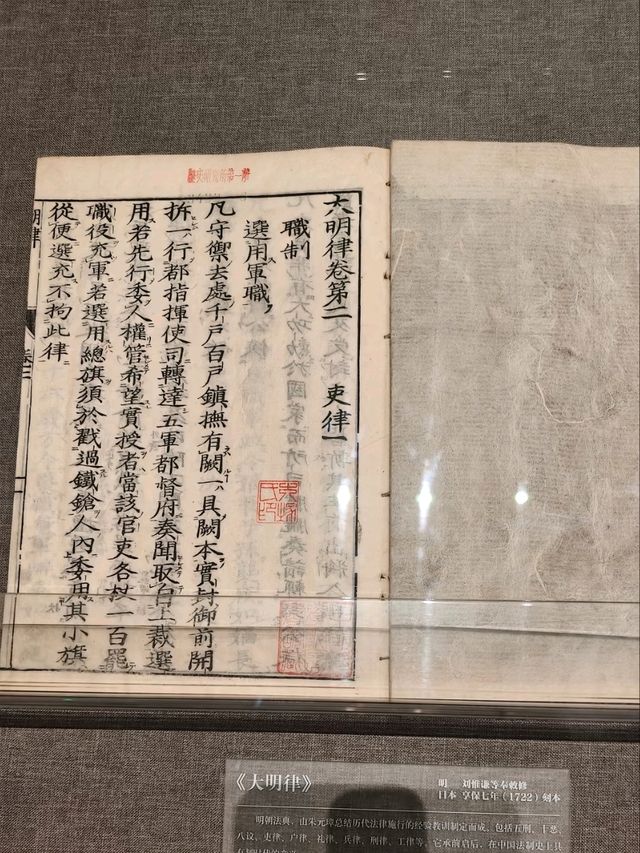 大明律卷第二 吏律一
職制
選用軍職
凡守禦去處千戶百戶鎮撫有闕一具闕本實封御前開
拆一行都指揮使司轉達五軍都督府奏聞取自上裁選
用若先行委人權管希望實授者當該官吏各杖一百罷
職役充軍若選用總旗須於戳過鐵鎗人內委用其小旗
從便選充不拘此律
明律
《大明律》
明 刘惟谦等奉敕修
日本 享保七年（1722）刻本
明朝法典，由朱元璋总结历代法律施行的经验教训制定而成，包括五刑、十恶、
八议、吏律、户律、礼律、兵律、刑律、工律等。它承前启后，在中国法制史上具